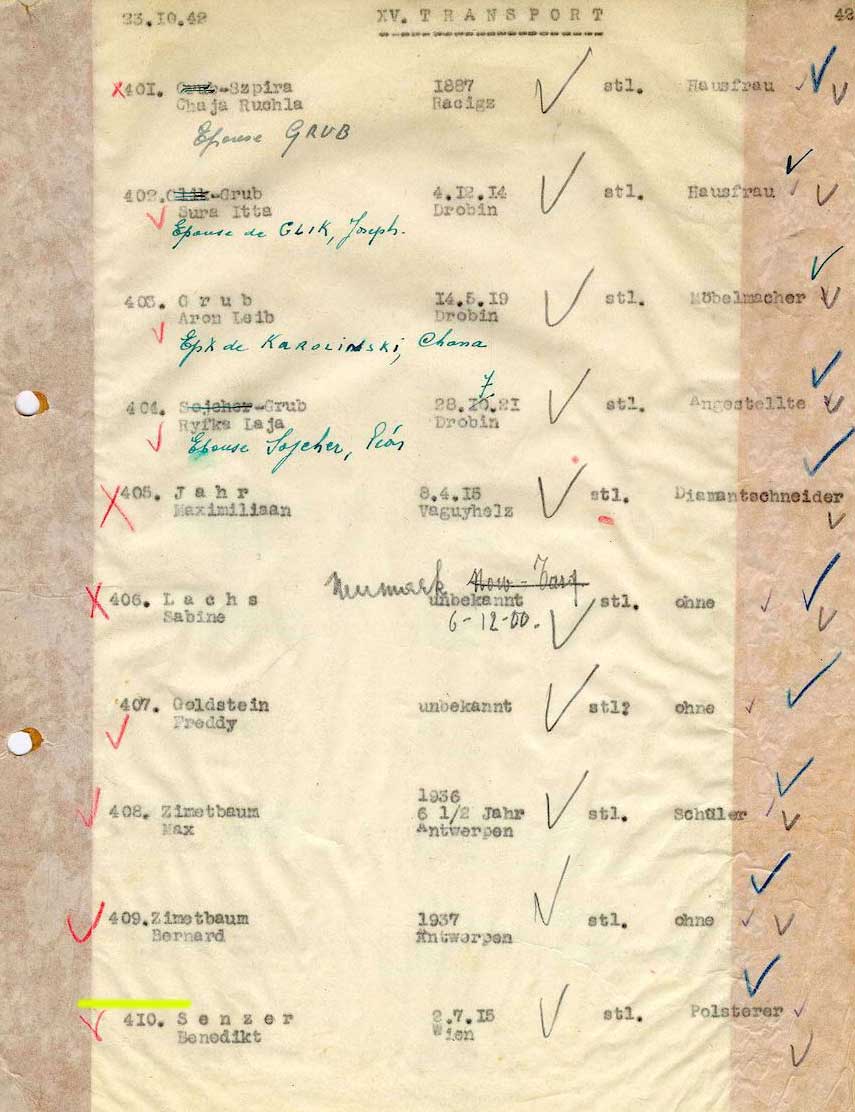 23.10.42 XV. TRANSPORT 42
401. Grub-Szpira 1887 stl. Hausfrau
Chaja Ruchla Racigz
Epouse GRUB
402. Glik-Grub 4.12.14 stl. Hausfrau
Sura Itta Drobin
Epouse de GLIK, Joseph.
403. Grub 14.5.19 stl. Möbelmacher
Aron Leib Drobin
Epx de KAROLINSKI, Chana
7
404. Sojcher-Grub 28.10.21 stl. Angestellte
Ryfka Laja Drobin
Epouse Sojcher,
405. Jahr 8.4.15 stl. Diamantschneider
Maximiliaan Vaguyhelz
Neumark Now-Targ
406. Lachs unbekannt stl. ohne
Sabine 6-12-00.
407. Goldstein unbekannt stl? ohne
Freddy
1936
408. Zimetbaum 6 1/2 Jahr stl. Schüler
Max Antwerpen
409. Zimetbaum 1937 stl. ohne
Bernard Antwerpen
410. Senzer 2.7.15 stl. Polsterer
Benedikt Wien